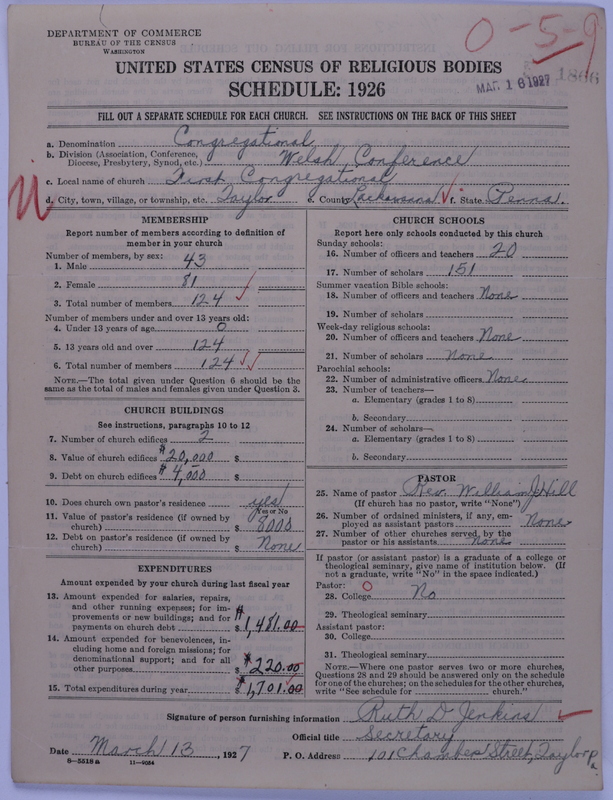 DEPARTMENT OF COMMERCE
BUREAU OF THE CENSUS
WASHINGTON
0-5-9
MAR 16 1927
1866
UNITED STATES CENSUS OF RELIGIOUS BODIES
SCHEDULE: 1926
FILL OUT A SEPARATE SCHEDULE FOR EACH CHURCH. SEE INSTRUCTIONS ON THE BACK OF THIS SHEET
a. Denomination Congregational
b. Division (Association, Conference, Diocese, Presbytery, Synod, etc.) Welsh Conference
c. Local name of church First Congregational
d. City, town, village, or township, etc. Taylor e. County Lackawanna f. State Penna.
MEMBERSHIP
Report number of members according to definition of
member in your church
Number of members, by sex:
1. Male 43
2. Female 81
3. Total number of members 124
Number of members under and over 13 years old:
4. Under 13 years of age 0
5. 13 years old and over 124
6. Total number of members 124
NOTE.—The total given under Question 6 should be the
same as the total of males and females given under Question 3.
CHURCH BUILDINGS
See instructions, paragraphs 10 to 12
7. Number of church edifices 2
8. Value of church edifices $20,000 $
9. Debt on church edifices $4,000 $
10. Does church own pastor's residence? yes
Yes or No
11. Value of pastor's residence (if owned by
church) $ 8000
12. Debt on pastor's residence (if owned by
church) $ None
EXPENDITURES
Amount expended by your church during last fiscal year
13. Amount expended for salaries, repairs,
and other running expenses; for im-
provements or new buildings; and for
payments on church debt $ 1,481.00
14. Amount expended for benevolences, in-
cluding home and foreign missions; for
denominational support; and for all
other purposes $ 220.00
15. Total expenditures during year $ 1,701.00
CHURCH SCHOOLS
Report here only schools conducted by this church
Sunday schools:
16. Number of officers and teachers 20
17. Number of scholars 151
Summer vacation Bible schools:
18. Number of officers and teachers None
19. Number of scholars
Week-day religious schools:
20. Number of officers and teachers None
21. Number of scholars none
Parochial schools:
22. Number of administrative officers None
23. Number of teachers—
a. Elementary (grades 1 to 8)
b. Secondary
24. Number of scholars—
a. Elementary (grades 1 to 8)
b. Secondary
PASTOR
25. Name of pastor Rev. William J Hill
(If church has no pastor, write "None")
26. Number of ordained ministers, if any, em-
ployed as assistant pastors None
27. Number of other churches served, by the
pastor or his assistants None
If pastor (or assistant pastor) is a graduate of a college or
theological seminary, give name of institution below. (If
not a graduate, write "No" in the space indicated.)
Pastor: 0
28. College No
29. Theological seminary
Assistant pastor:
30. College
31. Theological seminary
NOTE.—Where one pastor serves two or more churches,
Questions 28 and 29 should be answered only on the schedule
for one of the churches; on the schedules for the other churches,
write "See schedule for church."
Signature of person furnishing information Ruth D Jenkins
Official title Secretary
Date March 13, 1927 P. O. Address 101 Chamber Street, Taylor Pa.
8—5518a 11—9034